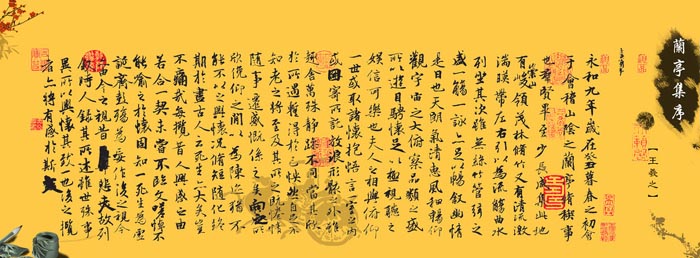 蘭亭集序
【王羲之】
永和九年歲在癸丑暮春之初會
于會稽山陰之蘭亭脩稧事
也群賢畢至少長咸集此地
有崇山峻領茂林脩竹又有清流激
湍暎帶左右引以為流觴曲水
列坐其次雖無絲竹管弦之
盛一觴一詠亦足以暢敘幽情
是日也天朗氣清惠風和暢仰
觀宇宙之大俯察品類之盛
所以遊目騁懷足以極視聽之
娛信可樂也夫人之相與俯仰
一世或取諸懷抱悟言一室之內
或因寄所託放浪形骸之外雖
趣舍萬殊靜躁不同當其欣
於所遇暫得於己怏然自足不
知老之將至及其所之既惓情
隨事遷感慨係之矣向之所
欣俛仰之閒以為陳迹猶不
能不以之興懷況脩短隨化終
期於盡古人云死生亦大矣豈
不痛哉每攬昔人興感之由
若合一契未嘗不臨文嗟悼不
能喻之於懷固知一死生為虛
誕齊彭殤為妄作後之視今
亦由今之視昔悲夫故列
敘時人錄其所述雖世殊事
異所以興懷其致一也後之攬
者亦將有感於斯